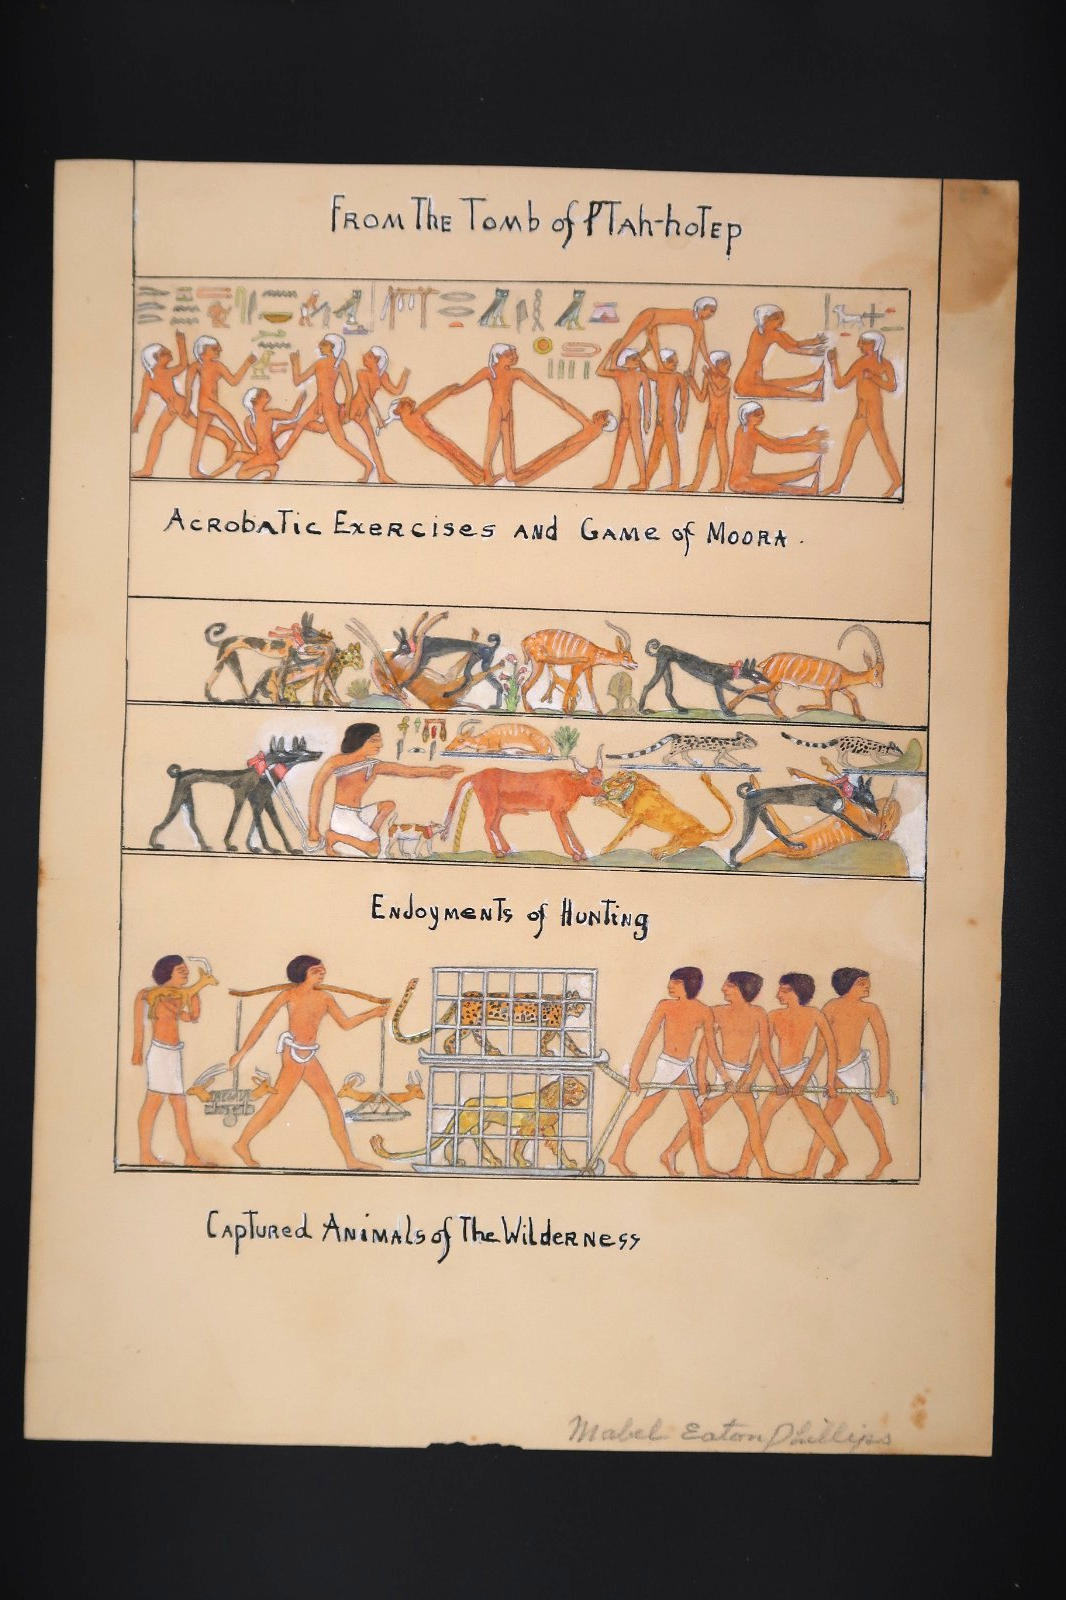 From The Tomb of Ptah-hotep
Acrobatic Exercises and Game of Moora.
Enjoyments of Hunting
Captured Animals of The Wilderness
Mabel Eaton Phillips